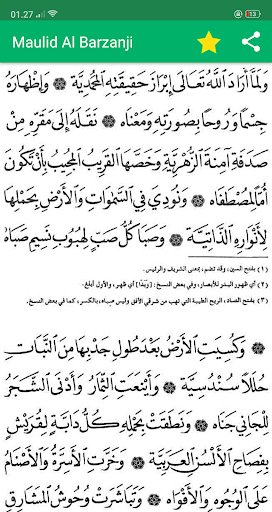 01.27
13
Maulid Al Barzanji
وَلَمَّا أَرَادَ ٱللَّهُ تَعَالَى إِبْرَازَ حَقِيقَتِهِ ٱلْمُحَمَّدِيَّةِ ۞ وَإِظْهَارَهُ
جِسْمًا وَرُوحًا بِصُورَتِهِ وَمَعْنَاهُ ۞ نَقَلَهُ إِلَى مَقَرِّهِ مِنْ
صَدَفَةِ آمِنَةَ ٱلزُّهْرِيَّةِ وَخَصَّهَا ٱلْقَرِيبُ ٱلْمُجِيبُ بِأَنْ تَكُونَ
أُمًّا لِمُصْطَفَاهُ ۞ وَنُودِيَ فِي ٱلسَّمَوَاتِ وَٱلْأَرْضِ بِحَمْلِهَا
لِأَنْوَارِهِ ٱلذَّاتِيَّةِ ۞ وَصَبَا كُلُّ صَبٍّ لِهُبُوبِ نَسِيمِ صَبَاهُ
(١) بفتح السين، وقد تضم، بمعنى الشريف والرئيس.
(٢) أي ظهور البدر للأبصار، وفي بعض النسخ: (وَبَدَا) أي ظهور، والأول أبلغ.
(٣) بفتح الصاد، الريح الطيبة التي تهب من شرقي الأفق وليس صباه، بالكسر، كما في بعض النسخ.
۞ وَكُسِيَتِ ٱلْأَرْضُ بَعْدَ طُولِ جَدْبِهَا مِنَ ٱلنَّبَاتِ
حُلَلًا سُنْدُسِيَّةً ۞ وَأَيْنَعَتِ ٱلثِّمَارُ وَأَدْنَى ٱلشَّجَرُ
لِلْجَانِي جَنَاهُ ۞ وَنَطَقَتْ بِحَمْلِهِ كُلُّ دَابَّةٍ لِقُرَيْشٍ
بِفِصَاحِ ٱلْأَلْسُنِ ٱلْعَرَبِيَّةِ ۞ وَخَرَّتِ ٱلْأَسِرَّةُ وَٱلْأَصْنَامُ
عَلَى ٱلْوُجُوهِ وَٱلْأَفْوَاهِ ۞ وَتَبَاشَرَتْ وُحُوشُ ٱلْمَشَارِقِ